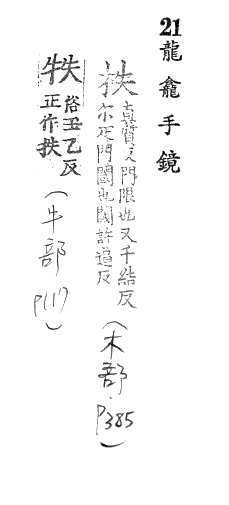 21龍龕手鏡
柣
直質反門限也又千結反
尒疋門閾也閾許逼反
(木部 p385)
俗丑乙反
正作抶
(牛部 p117)